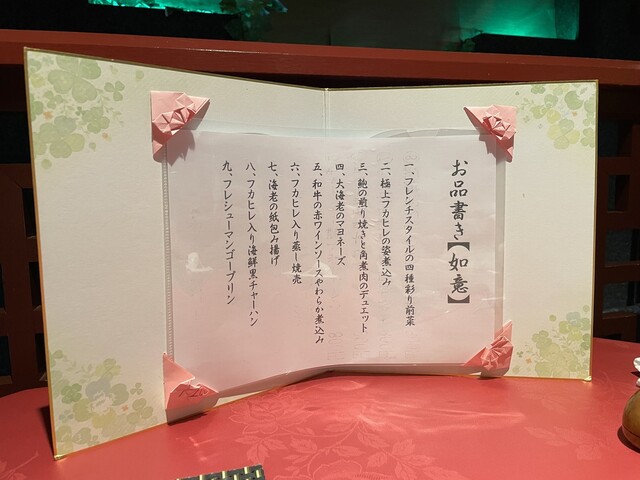 お品書き【如意】
一、フレンチスタイルの四種彩り前菜
二、極上フカヒレの姿煮込み
三、鮑の煎り焼きと角煮肉のデュエット
四、大海老のマヨネーズ
五、和牛の赤ワインソースやわらか煮込み
六、フカヒレ入り蒸し焼売
七、海老の紙包み揚げ
八、フカヒレ入り海鮮黒チャーハン
九、フレシューマンゴープリン